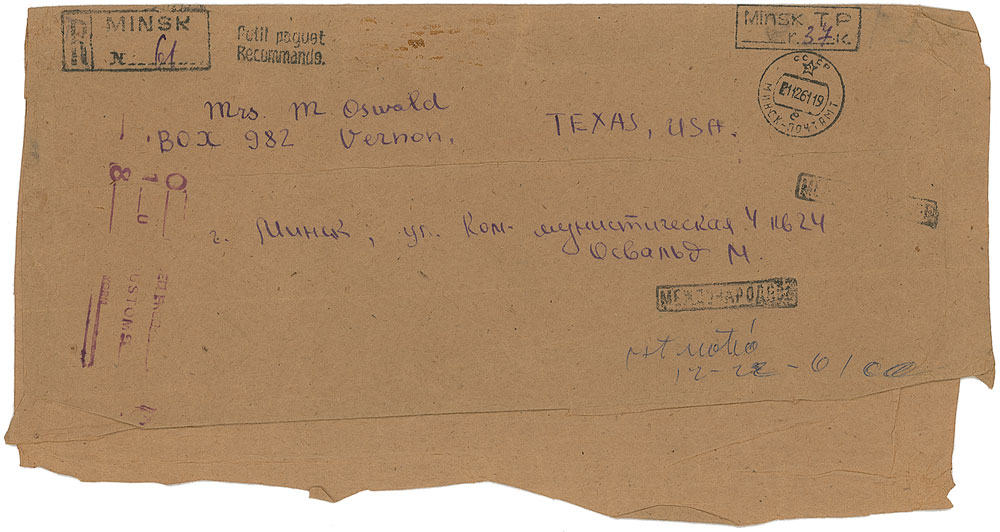 R MINSK
№ 61
Petit paquet
Recommande.
Minsk T.P
r. 37 k.
СССР
21126119
МИНСК-ПОЧТАМТ
Mrs. M Oswald
BOX 982 Vernon, TEXAS, USA.
г. Минск, ул. Ком-мунистическая 4 кв 24
Освальд М.
МЕЖДУНАРОДНОЕ
0
1
8
USTOMS
12-22-61